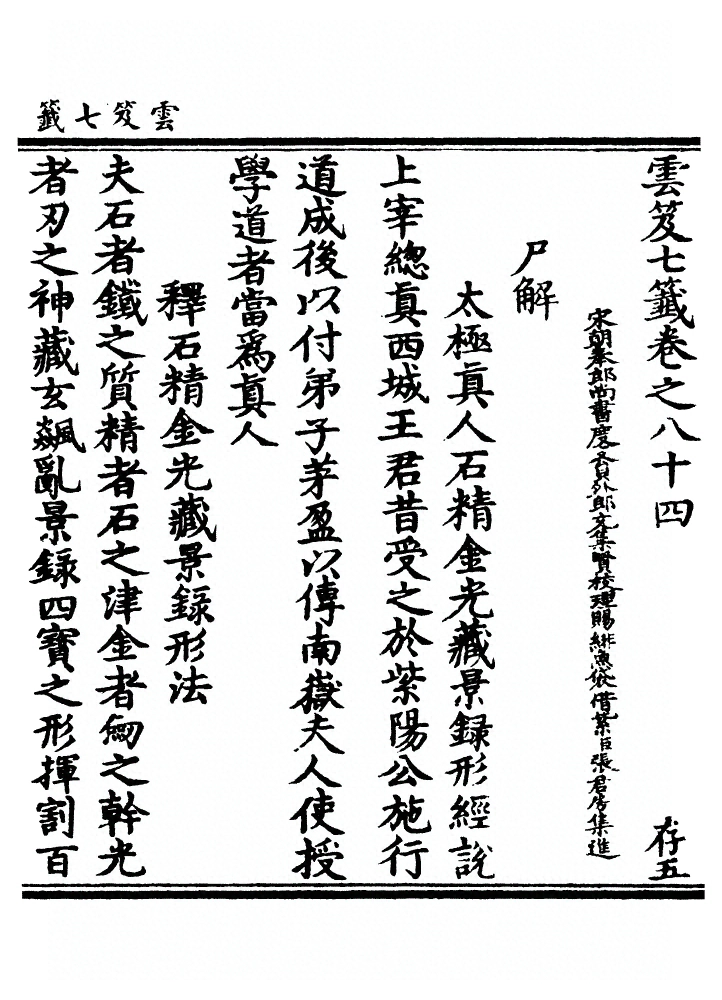 雲笈七籤
雲笈七籤卷之八十四 存五
宋朝奉郎尚書度支員外郎充集賢校理賜緋魚袋借紫臣張君房集進
尸解
太極眞人石精金光藏景録形經說
上宰總眞西城王君昔受之於紫陽公施行
道成後以付弟子茅盈以傳南嶽夫人使授
學道者當爲眞人
釋石精金光藏景録形法
夫石者鐵之質精者石之津金者劒之幹光
者刃之神藏玄飆亂景録四寶之形揮割百